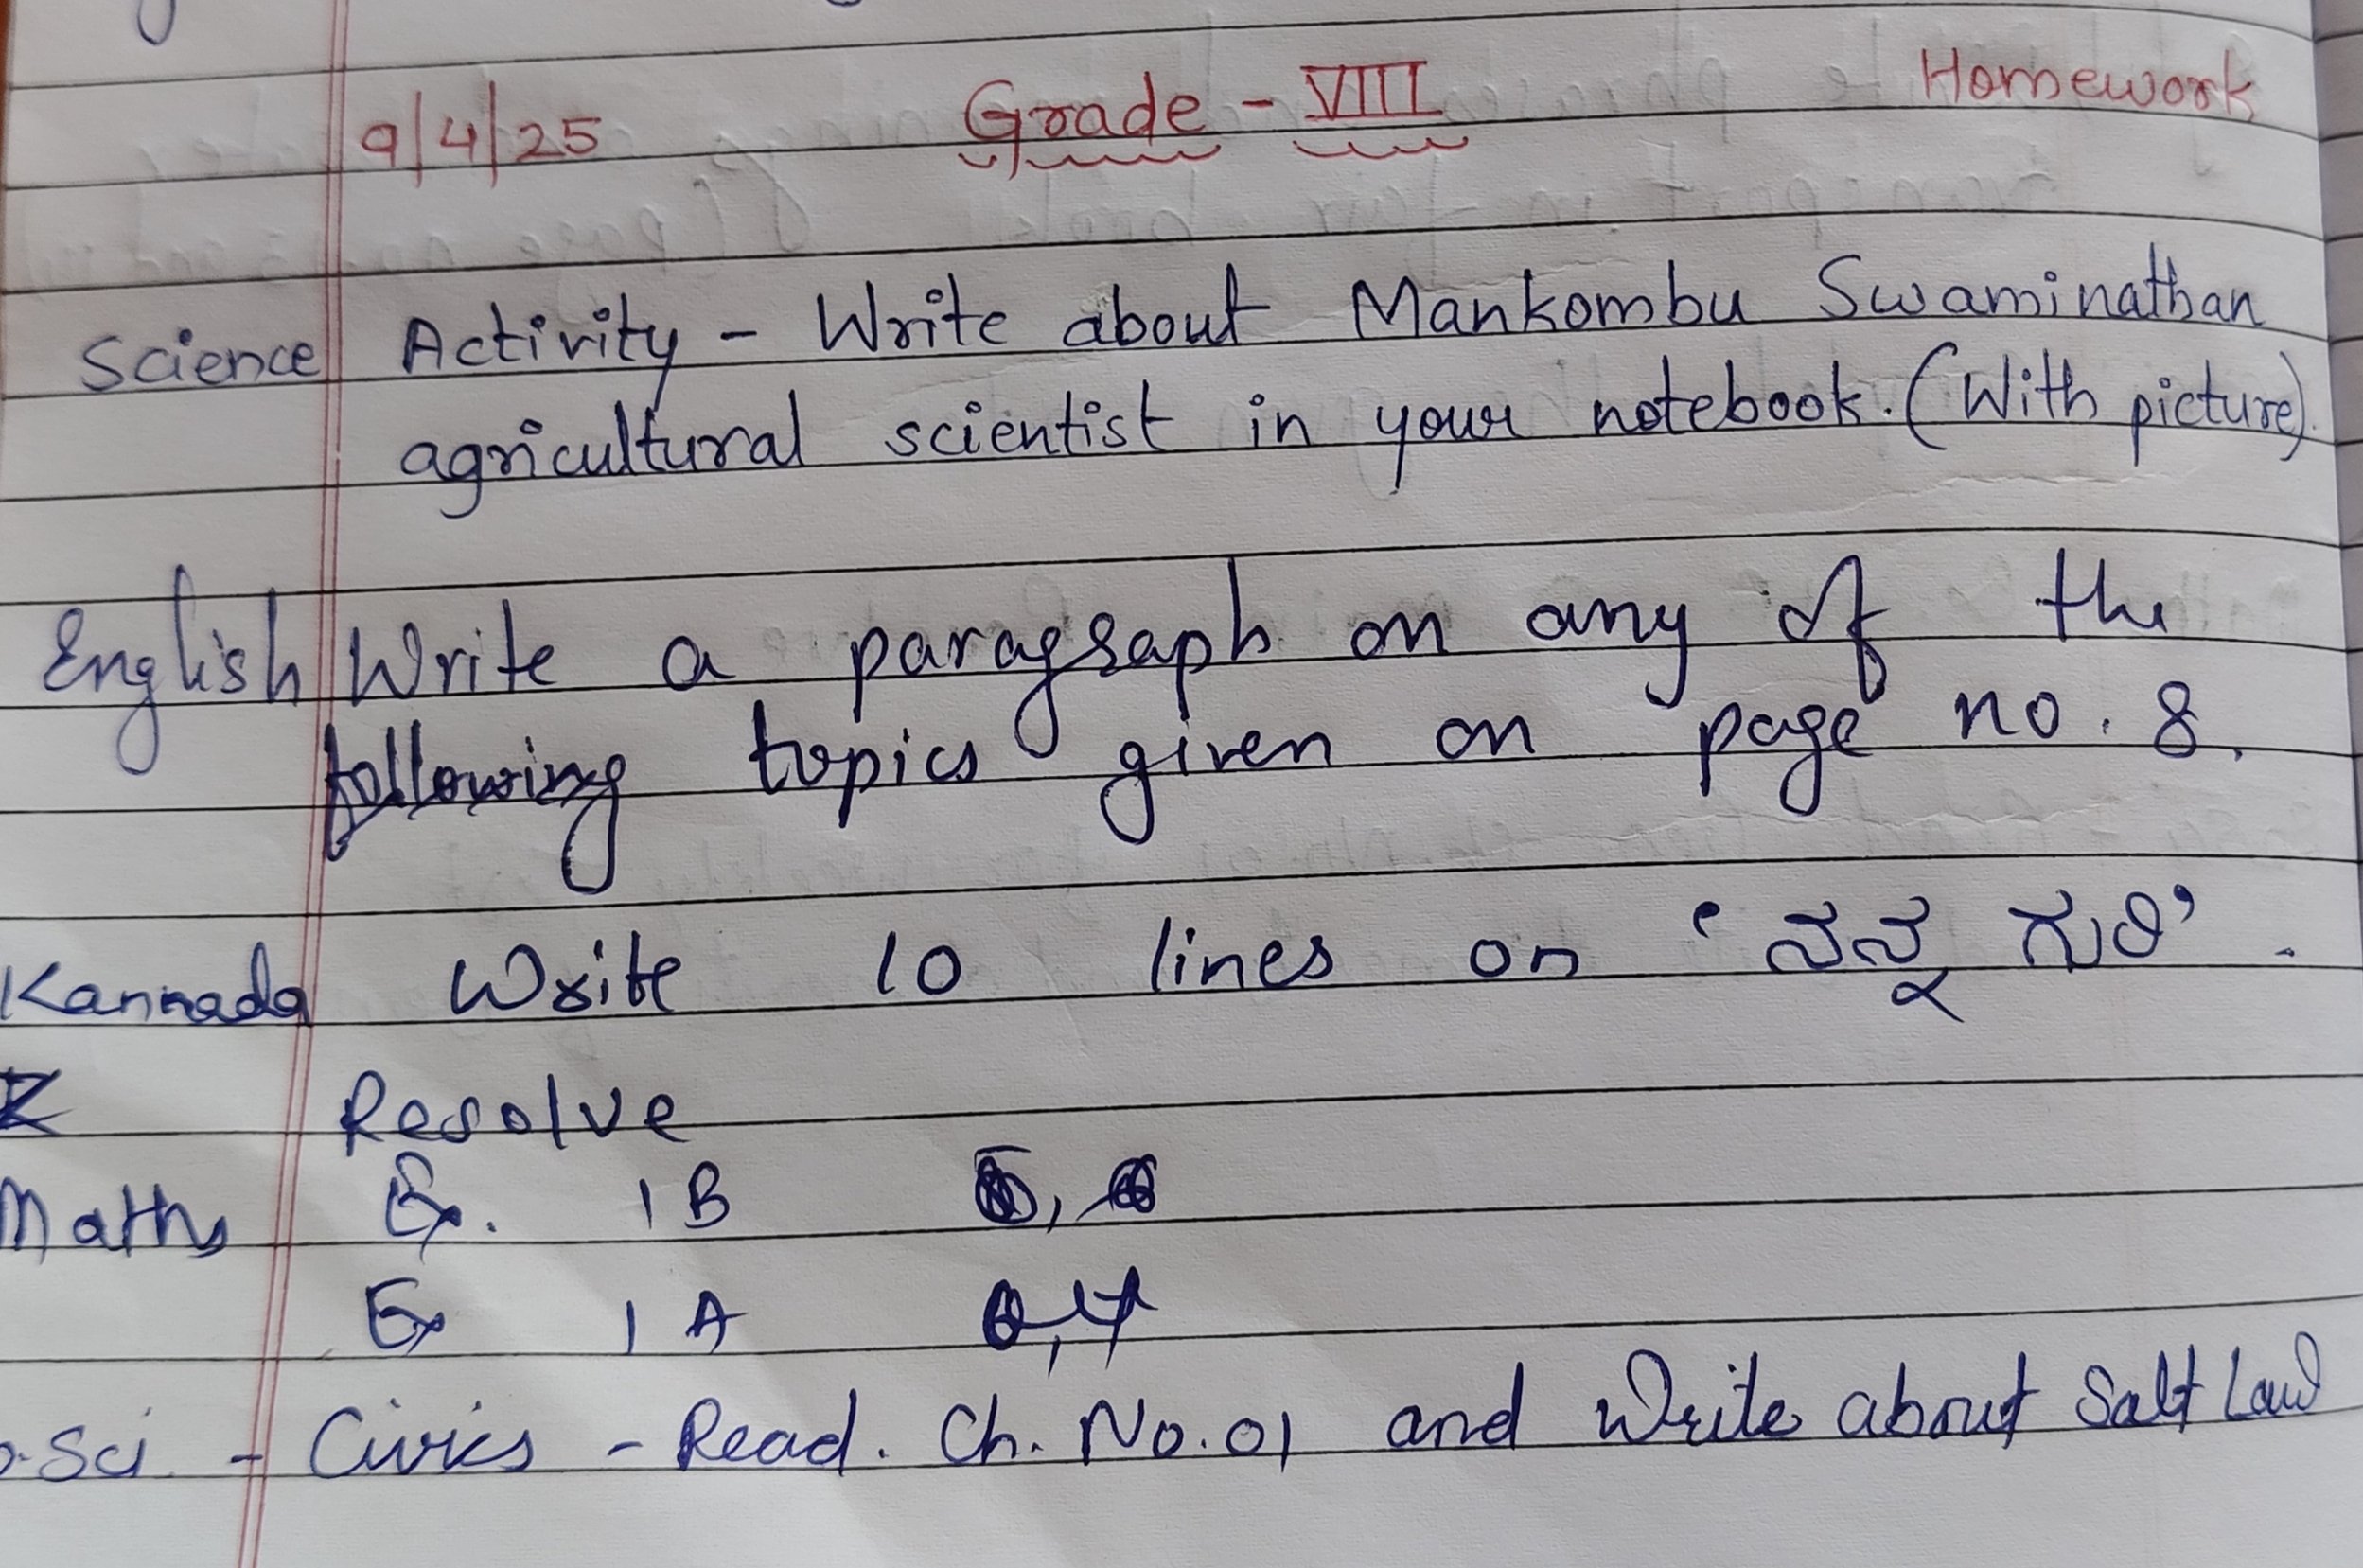 9/4/25 Grade - VIII Homework
Science Activity - Write about Mankombu Swaminathan
agricultural scientist in your notebook. (With picture).
English Write a paragraph on any of the
following topics given on page no. 8.
Kannada Write 10 lines on ‘ನನ್ನ ಗುರಿ’.
Resolve
Maths Ex. 1B
Ex 1A
Sci. - Civics - Read. Ch. No. 01 and Write about Salt Law